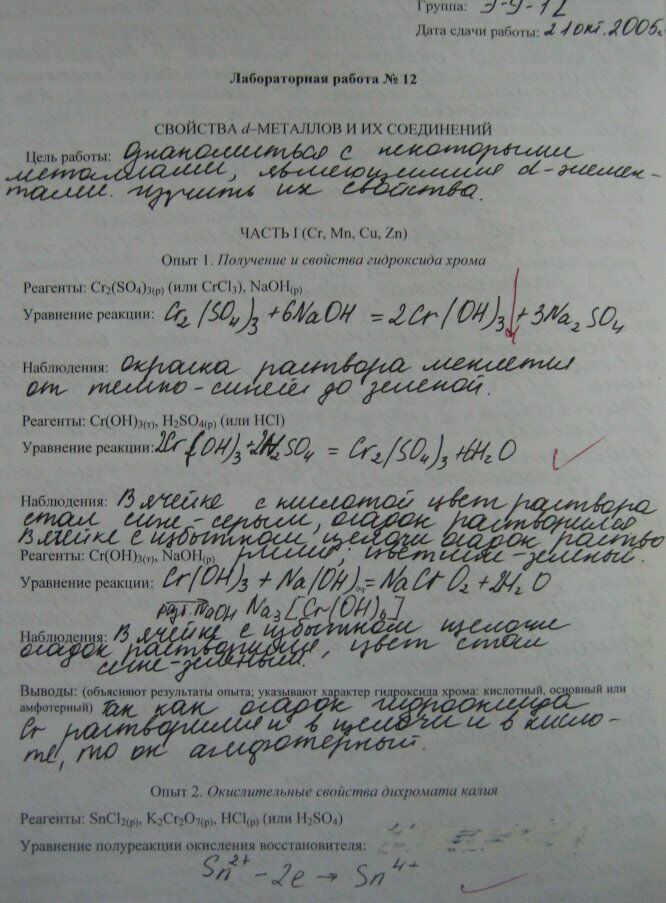 Группа: Э-9-12
Дата сдачи работы: 21 окт. 2006г.
Лабораторная работа № 12
СВОЙСТВА d–МЕТАЛЛОВ И ИХ СОЕДИНЕНИЙ
Цель работы: Ознакомиться с некоторыми
металлами, являющимися d-элемен-
тами. Изучить их свойства.
ЧАСТЬ I (Cr, Mn, Cu, Zn)
Опыт 1. Получение и свойства гидроксида хрома
Реагенты: Cr2(SO4)3(р) (или CrCl3), NaOH(р)
Уравнение реакции: Cr2(SO4)3 + 6NaOH = 2Cr(OH)3↓ + 3Na2SO4
Наблюдения: окраска раствора меняется
от темно-синей до зеленой.
Реагенты: Cr(OH)3(т), H2SO4(р) (или HCl)
Уравнение реакции: 2Cr(OH)3 + 2H2SO4 = Cr2(SO4)3 + 6H2O
Наблюдения: В ячейке с кислотой цвет раствора
стал сине-серым, осадок растворился
В ячейке с избытком щелочи осадок раство
рился, цвет сине-зеленый.
Реагенты: Cr(OH)3(т), NaOH(р)
Уравнение реакции: Cr(OH)3 + Na(OH) = NaCrO2 + 2H2O
NaOH Na3[Cr(OH)6]
Наблюдения: В ячейке с избытком щелочи
осадок растворился, цвет стал
сине-зеленым.
Выводы: (объясняют результаты опыта; указывают характер гидроксида хрома: кислотный, основный или
амфотерный) Так как осадок гидроксида
Cr растворился и в щелочи и в кисло-
те, то он амфотерный.
Опыт 2. Окислительные свойства дихромата калия
Реагенты: SnCl2(р), K2Cr2O7(р), HCl(р) (или H2SO4)
Уравнение полуреакции окисления восстановителя:
Sn2+ – 2e → Sn4+